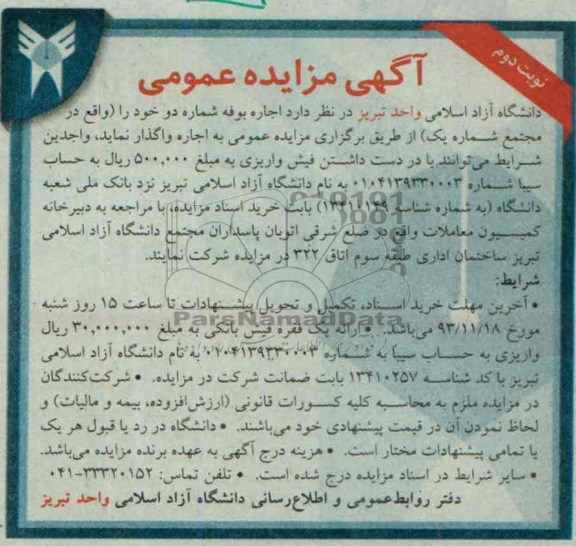 نوبت دوم
آگهی مزایده عمومی
دانشگاه آزاد اسلامی واحد تبریز در نظر دارد اجاره بوفه شماره دو خود را (واقع در
مجتمع شماره یک) از طریق برگزاری مزایده عمومی به اجاره واگذار نماید، واجدین
شرایط می‌توانند با در دست داشتن فیش واریزی به مبلغ ۵۰۰,۰۰۰ ریال به حساب
سیبا شماره ۰۱۰۴۱۳۹۳۳۰۰۰۳ به نام دانشگاه آزاد اسلامی تبریز نزد بانک ملی شعبه
دانشگاه (به شماره شناسه) بابت خرید اسناد مزایده، با مراجعه به دبیرخانه
کمیسیون معاملات واقع در ضلع شرقی اتوبان پاسداران مجتمع دانشگاه آزاد اسلامی
تبریز ساختمان اداری طبقه سوم اتاق ۳۲۲ در مزایده شرکت نمایند.
شرایط:
• آخرین مهلت خرید اسناد، تکمیل و تحویل پیشنهادات تا ساعت ۱۵ روز شنبه
مورخ ۹۳/۱۱/۱۸ می‌باشد. • ارائه یک فقره فیش بانکی به مبلغ ۳۰,۰۰۰,۰۰۰ ریال
واریزی به حساب سیبا به شماره ۰۱۰۴۱۳۹۳۳۰۰۰۳ به نام دانشگاه آزاد اسلامی
تبریز با کد شناسه ۱۳۴۱۰۲۵۷ بابت ضمانت شرکت در مزایده. • شرکت‌کنندگان
در مزایده ملزم به محاسبه کلیه کسورات قانونی (ارزش‌افزوده، بیمه و مالیات) و
لحاظ نمودن آن در قیمت پیشنهادی خود می‌باشند. • دانشگاه در رد یا قبول هر یک
یا تمامی پیشنهادات مختار است. • هزینه درج آگهی به عهده برنده مزایده می‌باشد.
• سایر شرایط در اسناد مزایده درج شده است. • تلفن تماس: ۳۳۳۲۰۱۵۲-۰۴۱
دفتر روابط‌عمومی و اطلاع‌رسانی دانشگاه آزاد اسلامی واحد تبریز
ParsNamadData